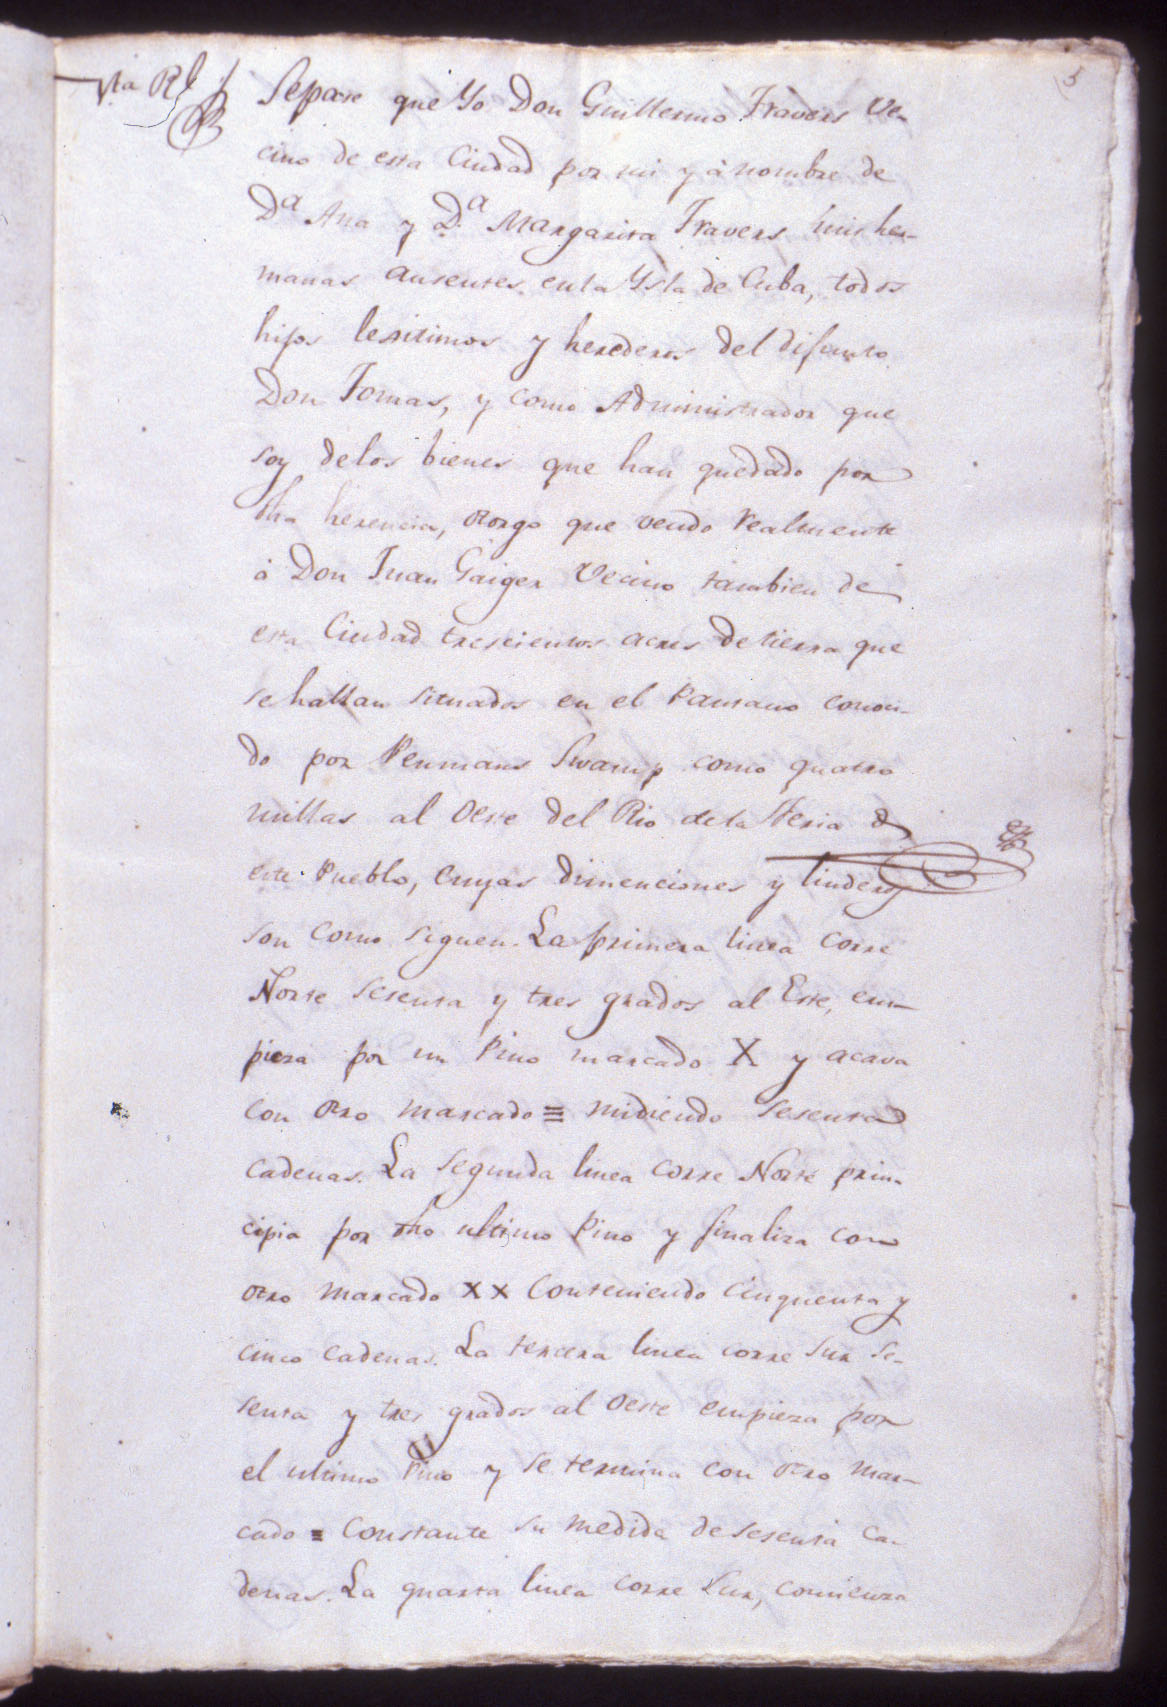 5
Vta Rl
Sepase que Yo Don Guillermo Travers Ve-
cino de esta Ciudad por mi y à nombre de
Da Ana y Da Margarita Travers mis her-
manas ausentes en la Ysla de Cuba, todos
hijos lexitimos y herederos del difunto
Don Tomas, y como Administrador que
soy delos bienes que han quedado por
dha herencia, otorgo que vendo realmente
à Don Juan Gaiger Vecino tambien de
esta Ciudad trescientos acres de tierra que
se hallan situados en el Pantano conoci-
do por Penmans Swamp como quatro
millas al Oeste del Rio dela Leña d
este Pueblo, cuyas dimenciones y linderos
son como siguen. La primera linea corre
Norte sesenta y tres grados al Este, em-
pieza por un Pino marcado X y acava
con otro marcado ≡ midiendo sesenta
cadenas. La segunda linea corre Norte prin-
cipia por dho ultimo Pino y finaliza con
otro marcado X X Conteniendo cinquenta y
cinco cadenas. La tercera linea corre Sur se-
senta y tres grados al Oeste empieza por
el ultimo Pino y se termina con otro mar-
cado ≡ Constante su medida de sesenta ca-
denas. La quarta linea corre Sur, comienza